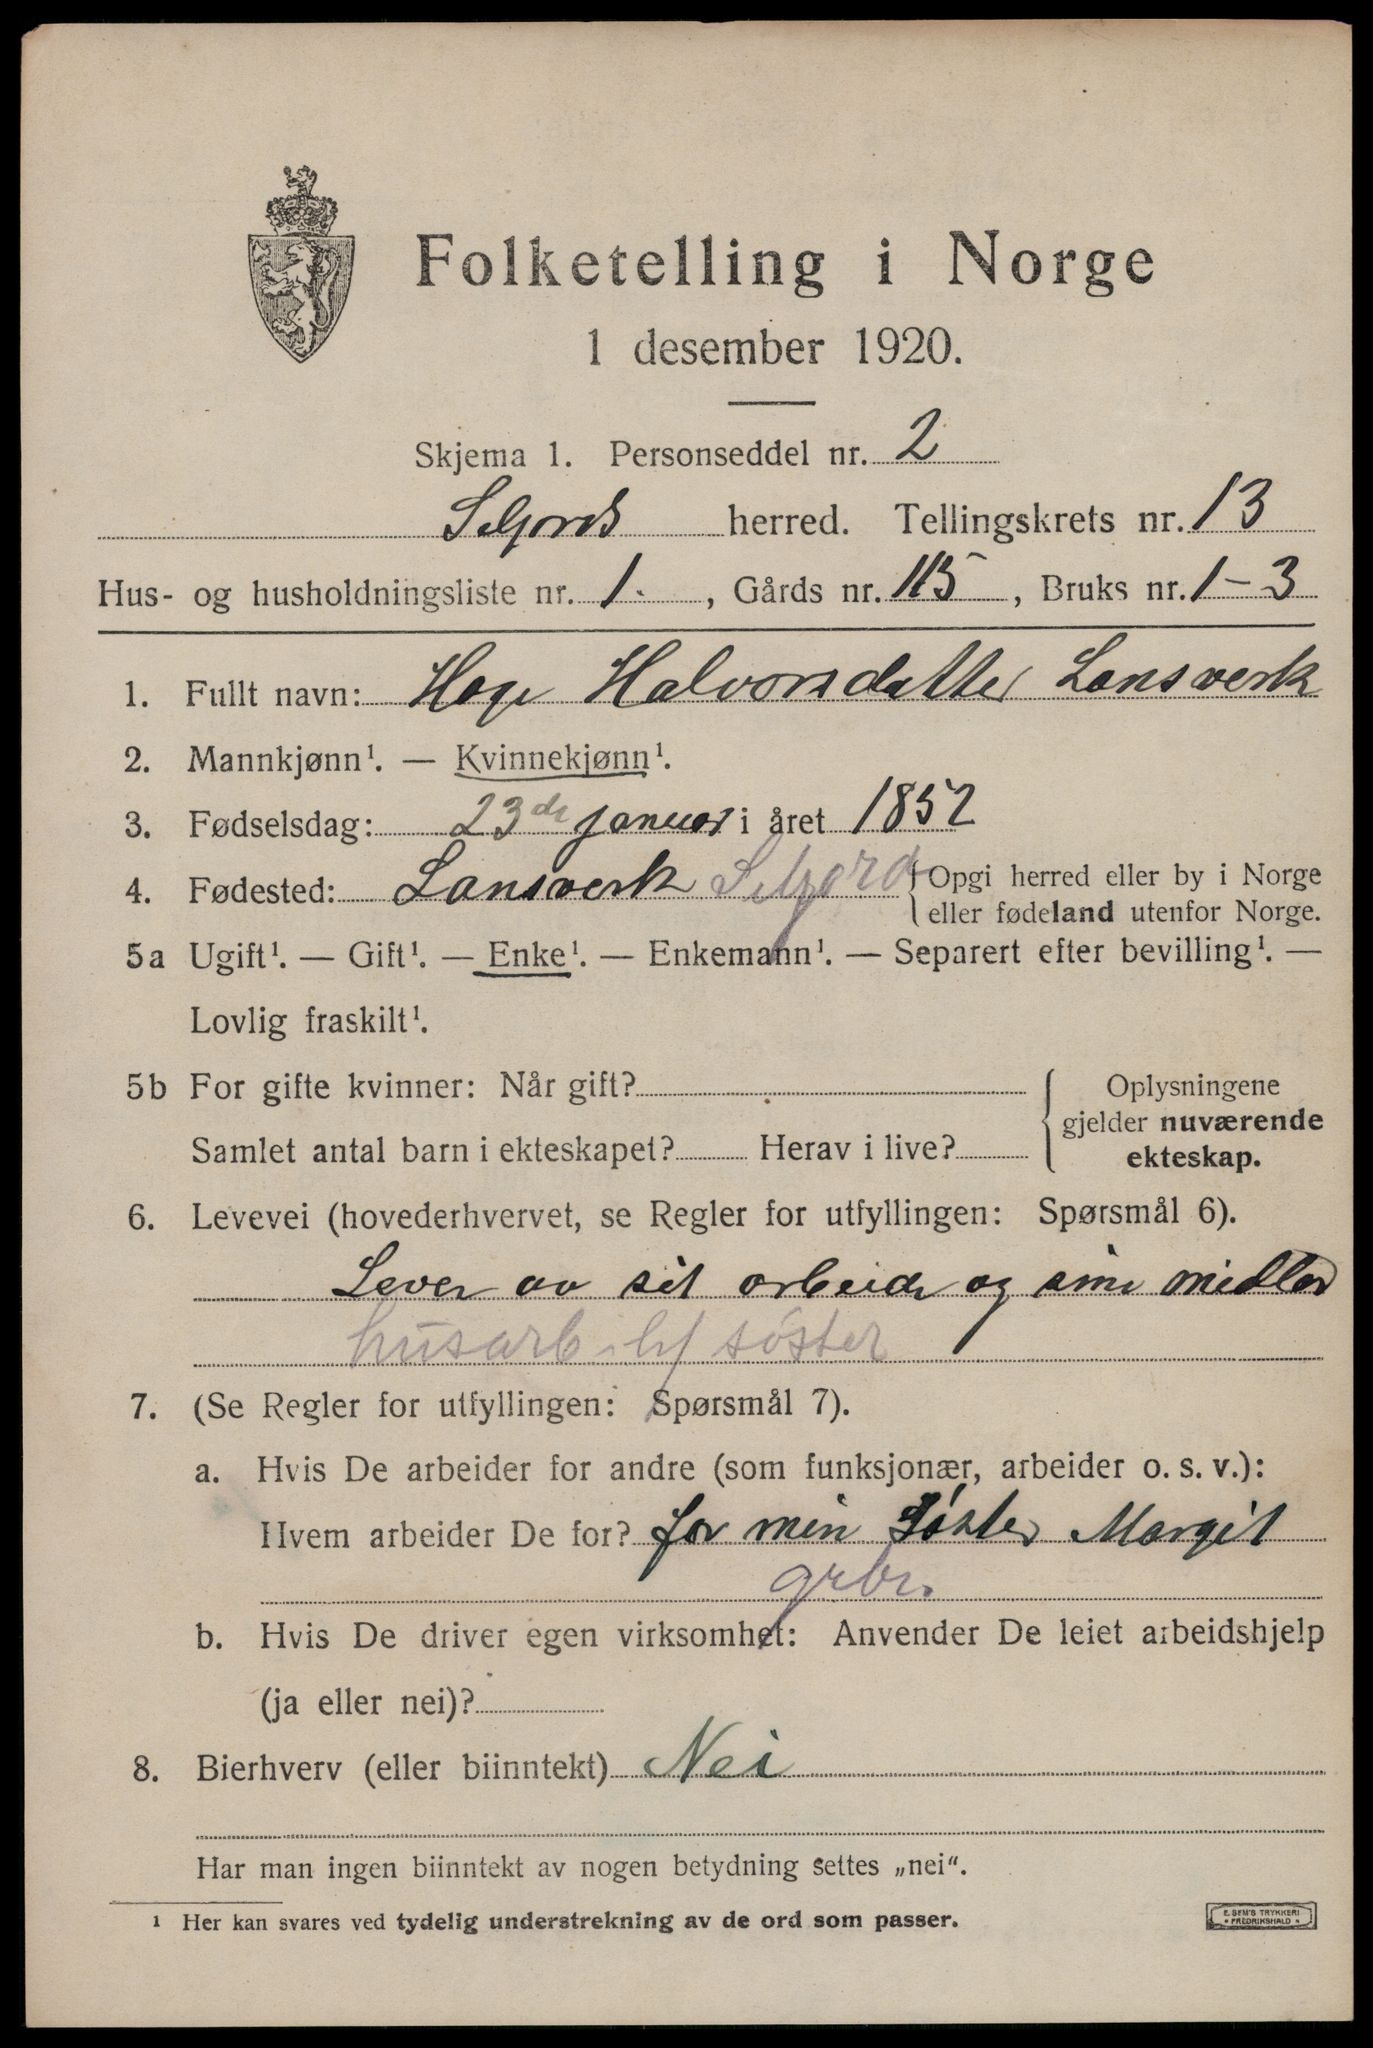 Folketelling i Norge
1 desember 1920.
Skjema 1. Personseddel nr. 2
Seljord herred. Tellingskrets nr. 13
Hus- og husholdningsliste nr. 1. , Gårds nr. 115 , Bruks nr. 1-3
1. Fullt navn: Halvorsdatter Lansverk
2. Mannkjønn¹. — Kvinnekjønn¹.
3. Fødselsdag: 23de januar i året 1852
4. Fødested: Lansverk Seljord { Opgi herred eller by i Norge
eller fødeland utenfor Norge.
5a Ugift¹. — Gift¹. — Enke¹. — Enkemann¹. — Separert efter bevilling¹. —
Lovlig fraskilt¹.
5b For gifte kvinner: Når gift?
Samlet antal barn i ekteskapet? Herav i live?
Oplysningene
gjelder nuværende
ekteskap.
6. Levevei (hovederhvervet, se Regler for utfyllingen: Spørsmål 6).
Lever av sit arbeide og sine midler
husarb søster
7. (Se Regler for utfyllingen: Spørsmål 7).
a. Hvis De arbeider for andre (som funksjonær, arbeider o. s. v.):
Hvem arbeider De for? for min Søster Margit
grbr.
b. Hvis De driver egen virksomhet: Anvender De leiet arbeidshjelp
(ja eller nei)?
8. Bierhverv (eller biinntekt) Nei
Har man ingen biinntekt av nogen betydning settes „nei“.
¹ Her kan svares ved tydelig understrekning av de ord som passer.
E. SEM'S TRYKKERI
FREDRIKSHALD